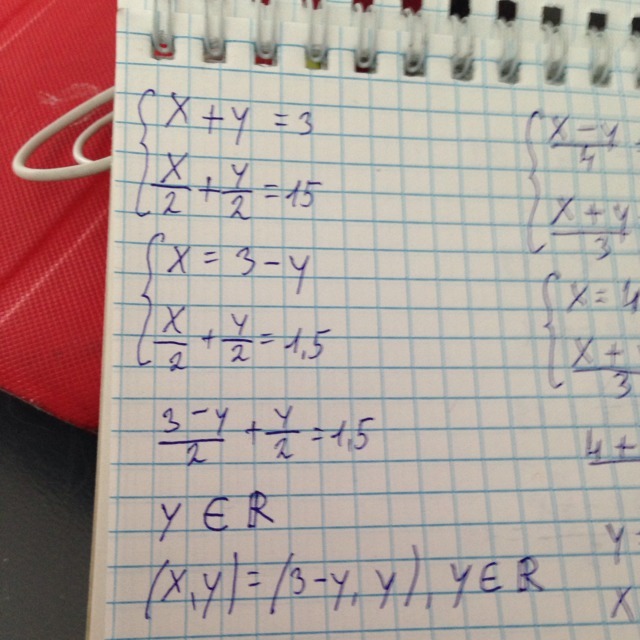 x + y = 3
x/2 + y/2 = 15
x = 3 - y
x/2 + y/2 = 1,5
(3 - y)/2 + y/2 = 1,5
y ∈ R
(x, y) = (3 - y, y), y ∈ R
(x - y)/4
(x + y)/3
x = 4
x +
3
4 +
y
x